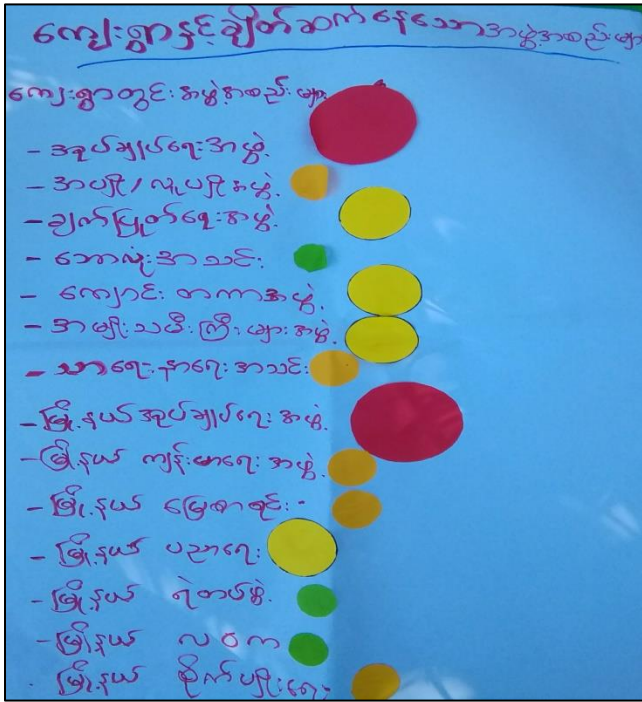 ကျေးရွာနှင့်ချိတ်ဆက်နေသောအဖွဲ့အစည်းများ
ကျေးရွာတွင်းအဖွဲ့အစည်းများ
- အုပ်ချုပ်ရေးအဖွဲ့
- အပျို/လူပျိုအဖွဲ့
- ချက်ပြုတ်ရေးအဖွဲ့
- ဘောလုံးအသင်း
- ကျောင်းတကာအဖွဲ့
- အမျိုးသမီးကြီးများအဖွဲ့
- သာရေးနာရေးအသင်း
- မြို့နယ်အုပ်ချုပ်ရေးအဖွဲ့
- မြို့နယ် ကျန်းမာရေးအဖွဲ့
- မြို့နယ် မြေစာရင်း
- မြို့နယ် ပညာရေး
- မြို့နယ် ရဲတပ်ဖွဲ့
- မြို့နယ် လဝက
- မြို့နယ် စိုက်ပျိုးရေး